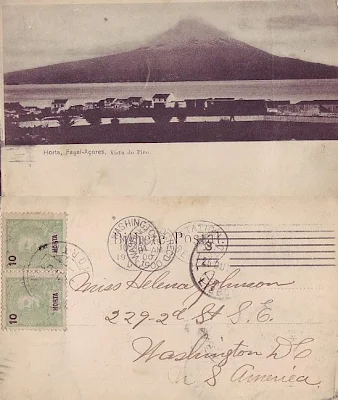 Horta, Fayal-Açores. Vista do Pico.
Bilhete Postal
10
HORTA
10
HORTA
WASHINGTON
Miss Helena Johnson
229-2d St S.E.
Washington D C
U S America